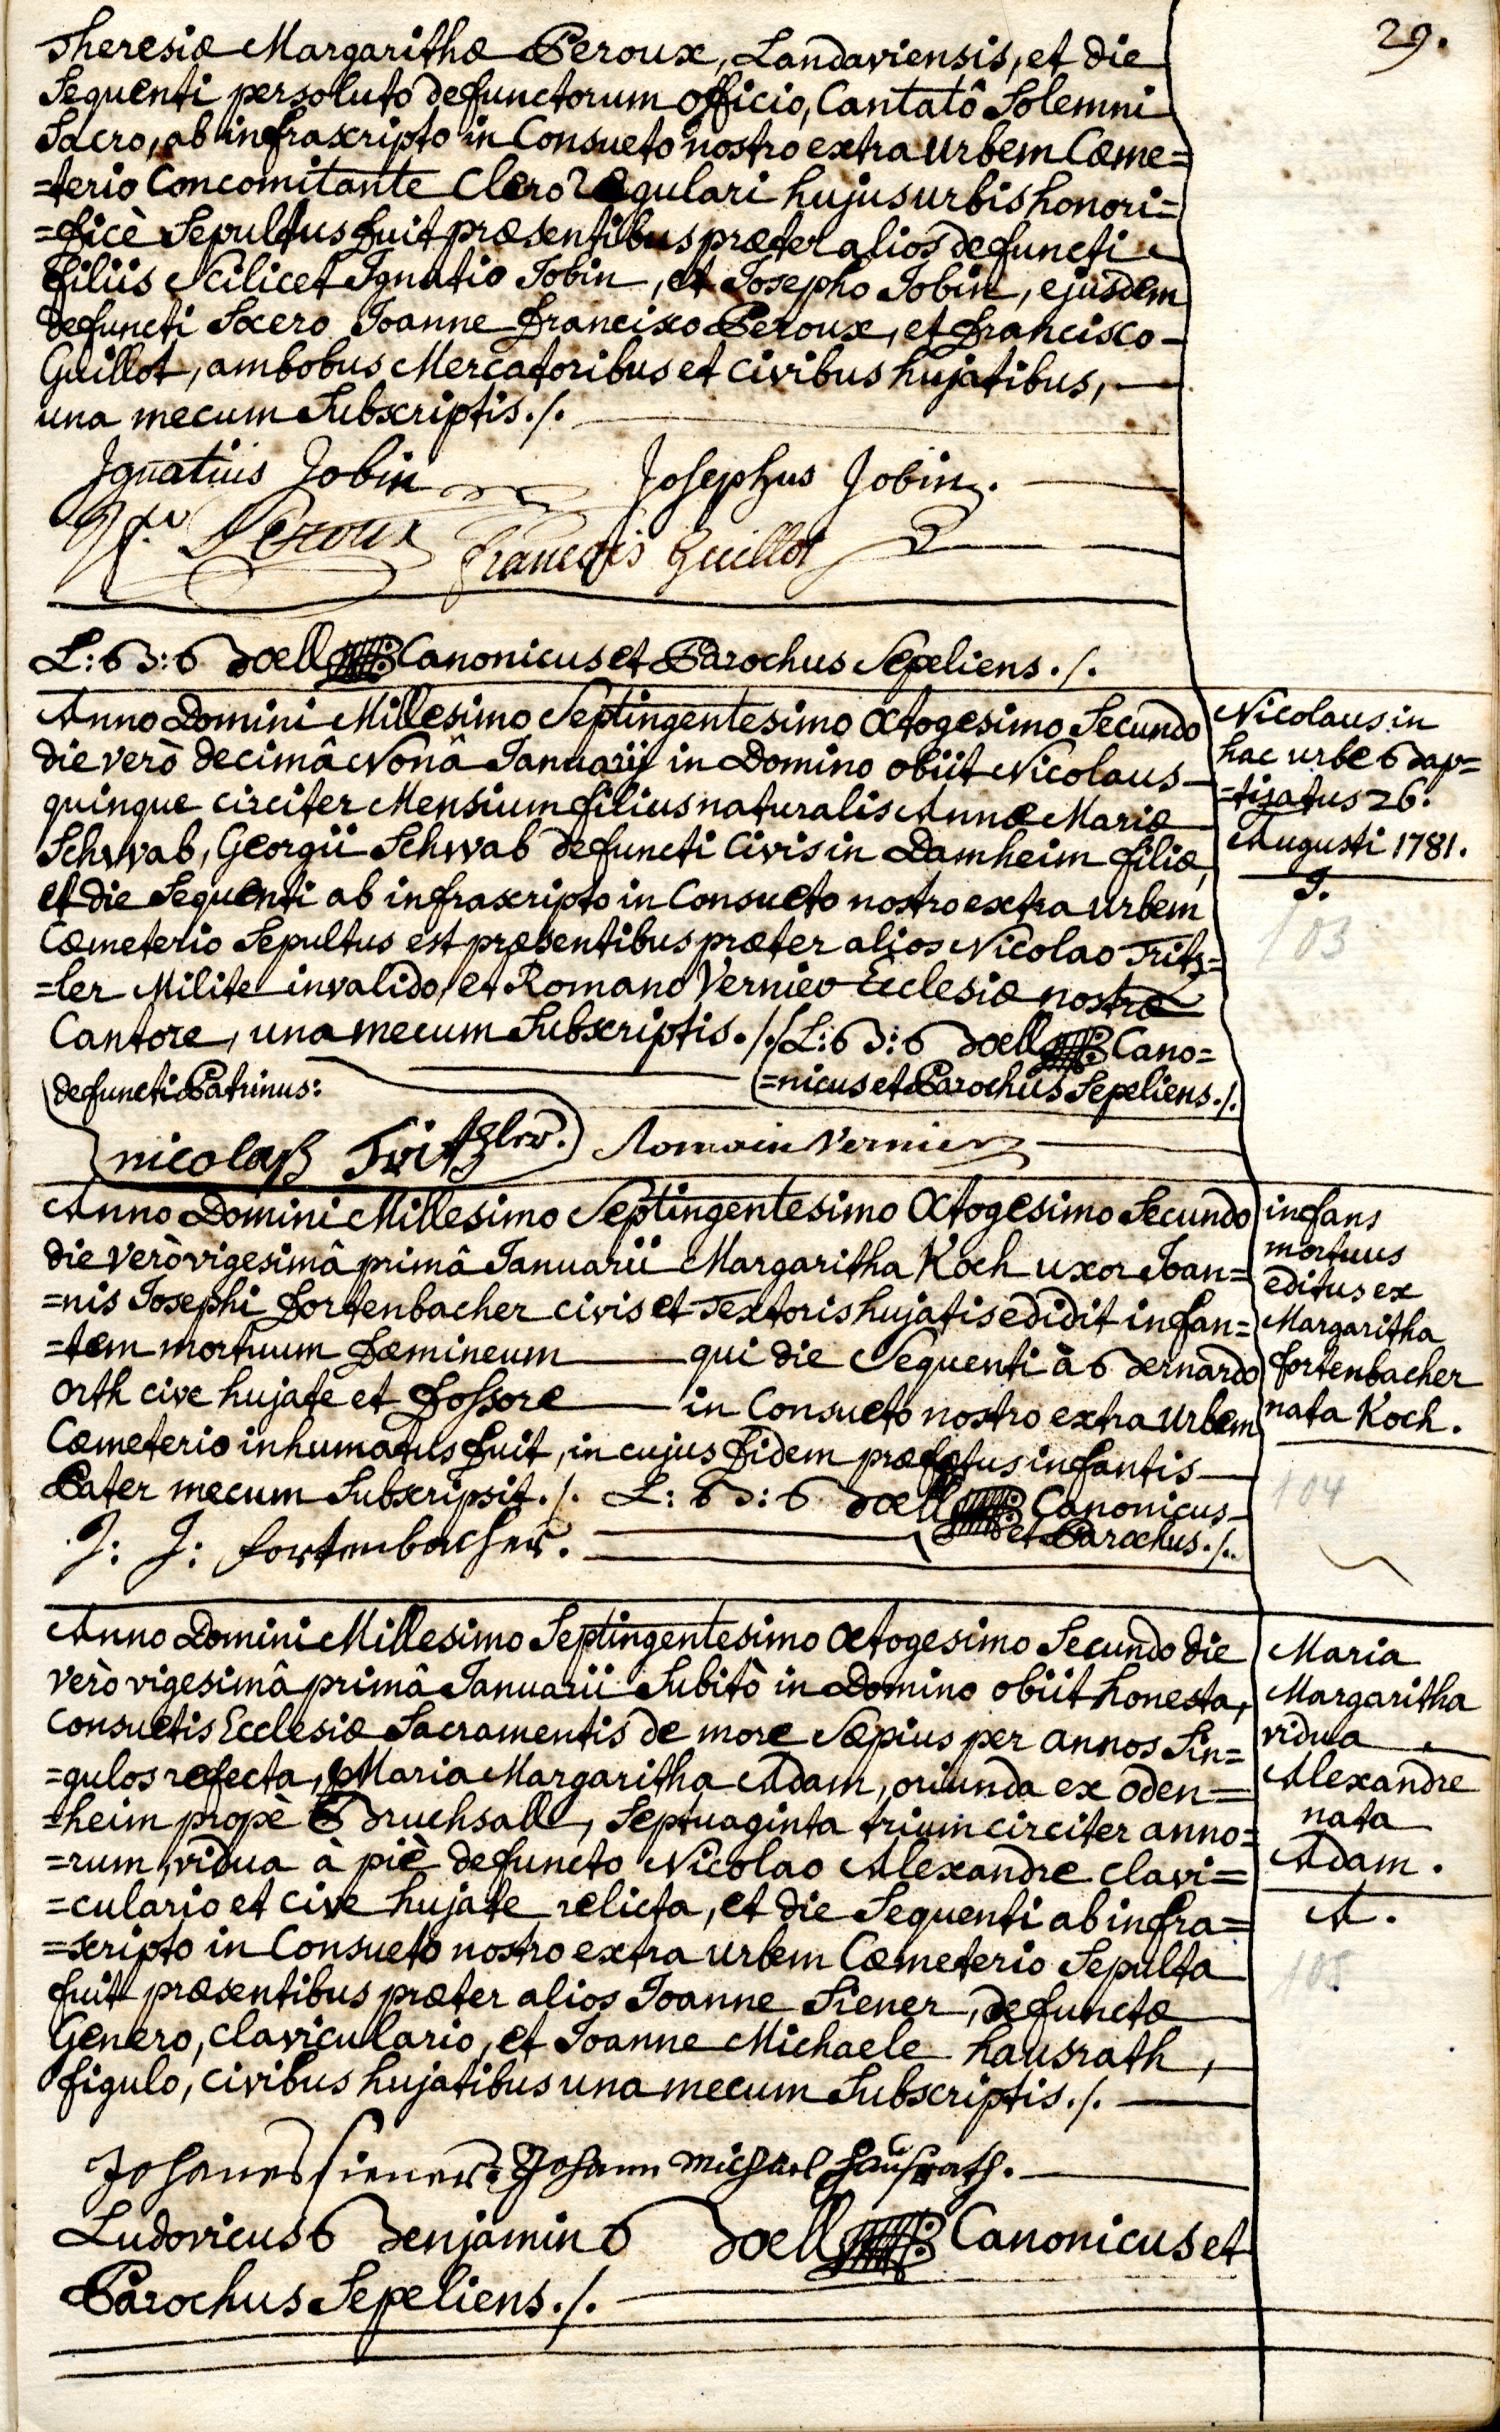 29.
Theresiæ Margarithæ Peroux, Landaviensis, et die
Sequenti persoluto defunctorum officio, Cantatô Solemni
Sacro, ab infrascripto in Consueto nostro extra Urbem Cœme=
=terio Concomitante Clero Regulari hujus urbis honori=
=ficè Sepultus fuit præsentibus præter alios defuncti
filiis Scilicet Ignatio Jobin, et Josepho Jobin, ejusdem
defuncti Socero Joanne Francisco Peroux, et Francisco
Guillot, ambobus Mercatoribus et Civibus hujatibus,
una mecum Subscriptis./.
Ignatius Jobin Josephus Jobin.
Peroux François Guillot
L: B: Boell Canonicus et Parochus Sepeliens./.
Anno Domini Millesimo Septingentesimo Octogesimo Secundo
die verò decimâ Nonâ Januarii in Domino obiit Nicolaus
quinque circiter Mensium filius naturalis Annæ Mariæ
Schwab, Georgii Schwab defuncti Civis in Damheim filiæ,
et die Sequenti ab infrascripto in Consueto nostro extra Urbem
Cœmeterio Sepultus est præsentibus præter alios Nicolao Fritz=
=ler Milite invalido, et Romano Vernier Ecclesiæ nostræ
Cantore, una mecum Subscriptis./. L: B: Boell Cano=
=nicus et Parochus Sepeliens./.
defuncti Patrinus:
nicolaß Fritzler. Romain Vernier
Nicolaus in
hac urbe bap=
=tizatus 26.
Augusti 1781.
S.
103
Anno Domini Millesimo Septingentesimo Octogesimo Secundo
die verò vigesimâ primâ Januarii Margaritha Koch uxor Joan=
=nis Josephi Fortenbacher civis et Textoris hujatis edidit infan=
=tem mortuum fœmineum qui die Sequenti à Bernardo
Orth cive hujate et fossore in Consueto nostro extra Urbem
Cœmeterio inhumatus fuit, in cujus fidem præfatus infantis
Pater mecum Subscripsit./. L: B: Boell Canonicus
et Parochus./.
J: J: fortenbacher.
infans
mortuus
editus ex
Margaritha
fortenbacher
nata Koch.
104
Anno Domini Millesimo Septingentesimo Octogesimo Secundo die
verò vigesimâ primâ Januarii Subitò in Domino obiit honesta,
Consuetis Ecclesiæ Sacramentis de more Sæpius per annos Sin=
=gulos refecta, Maria Margaritha Adam, oriunda ex Oden=
=heim propè Bruchsall, Septuaginta trium circiter anno=
=rum, vidua à piè defuncto Nicolao Alexandre clavi=
=culario et cive hujate relicta, et die Sequenti ab infra=
=scripto in Consueto nostro extra urbem Cœmeterio Sepulta
fuit præsentibus præter alios Joanne Siener, defunctæ
Genero, claviculario, et Joanne Michaele hausrath,
figulo, civibus hujatibus una mecum Subscriptis./.
Johanes siener. Johann Michael Haußrath.
Ludovicus Benjamin Boell Canonicus et
Parochus Sepeliens./.
Maria
Margaritha
vidua
Alexandre
nata
Adam.
A.
105